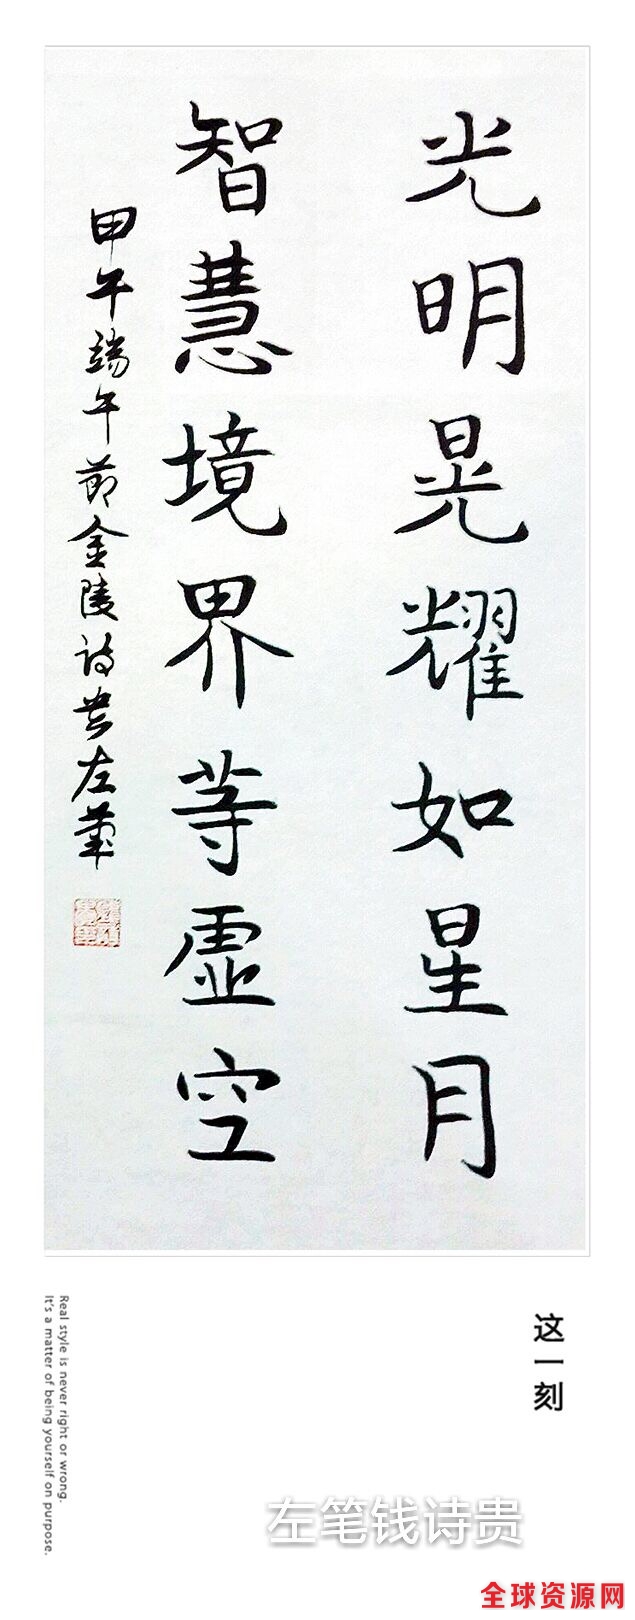 光明晃耀如星月
智慧境界等虚空
甲午端午节金陵诗贵左笔
这一刻
Real style is never right or wrong.
It's a matter of being yourself on purpose.
左笔钱诗贵
全球资源网